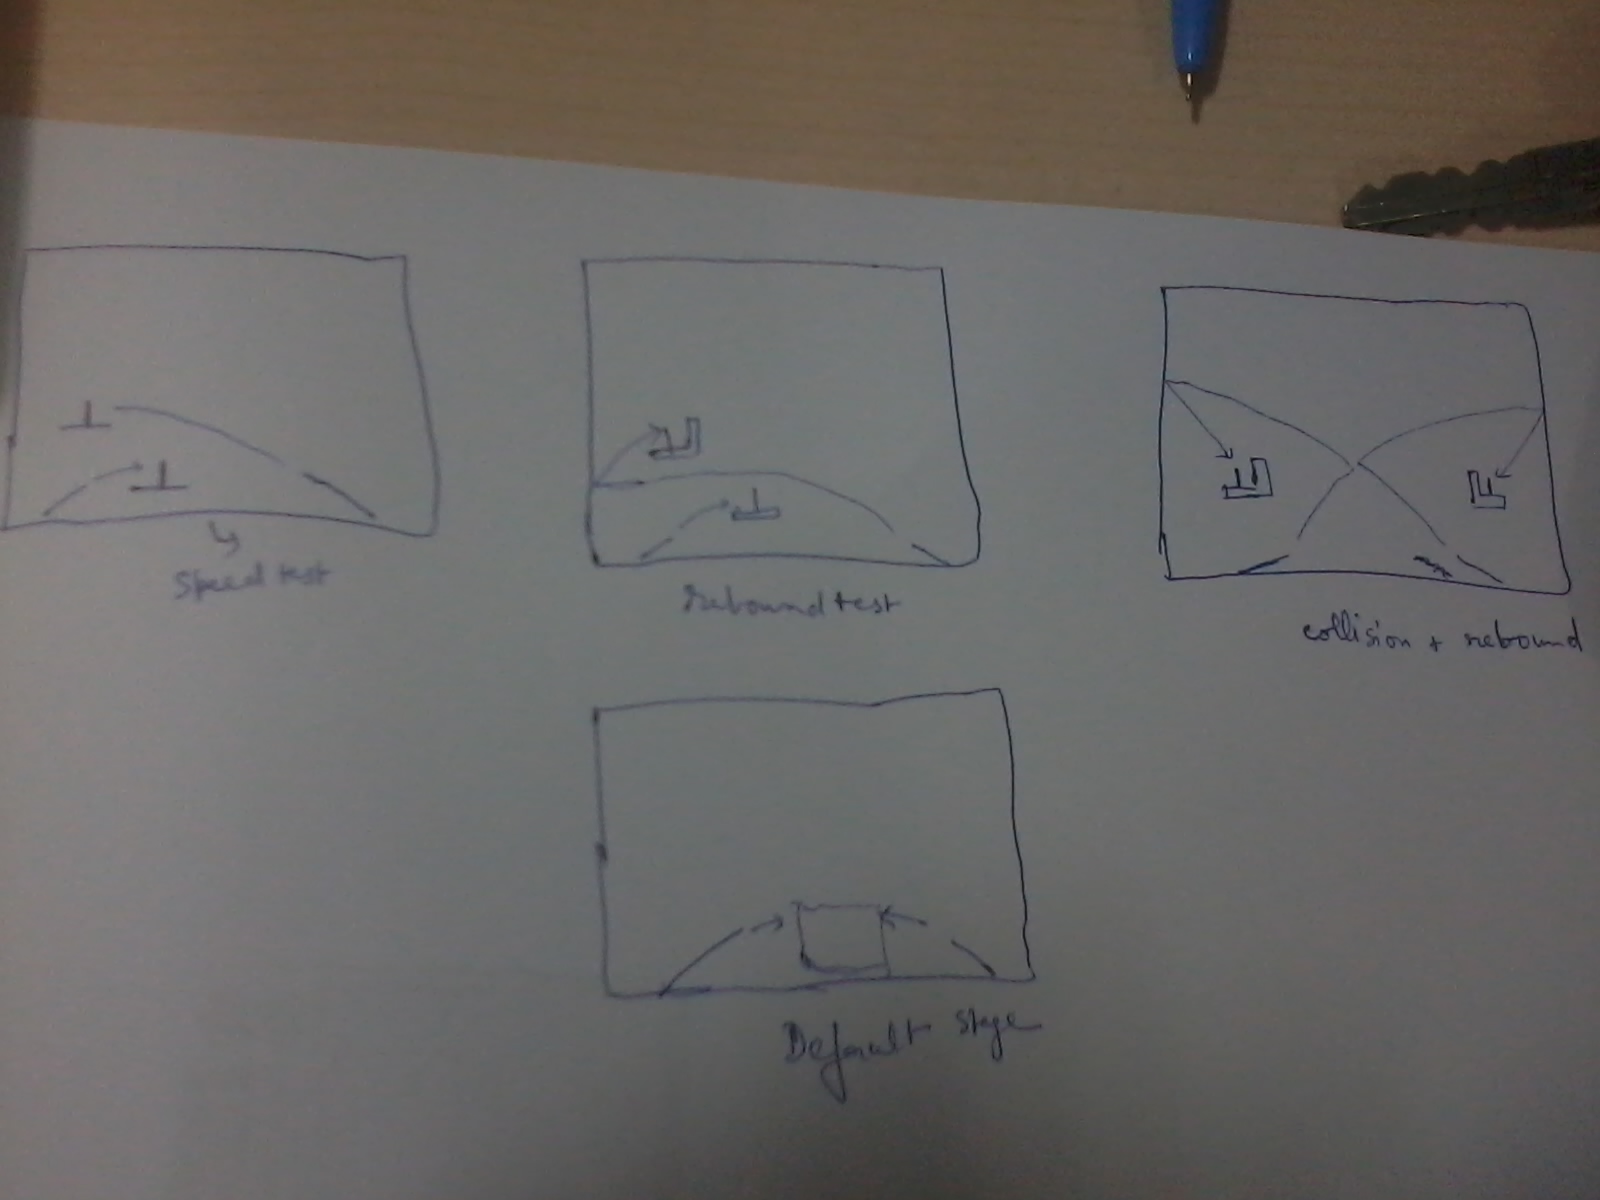 Speed test
rebound test
collision + rebound
Default stage